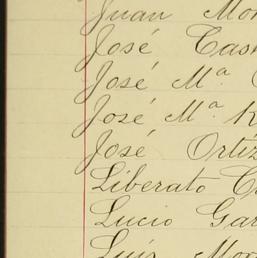 Juan Mor
José Cas
José Mª.
José Mª. R
José Ortiz
Liberato C
Lucio Gar
Luis Mor